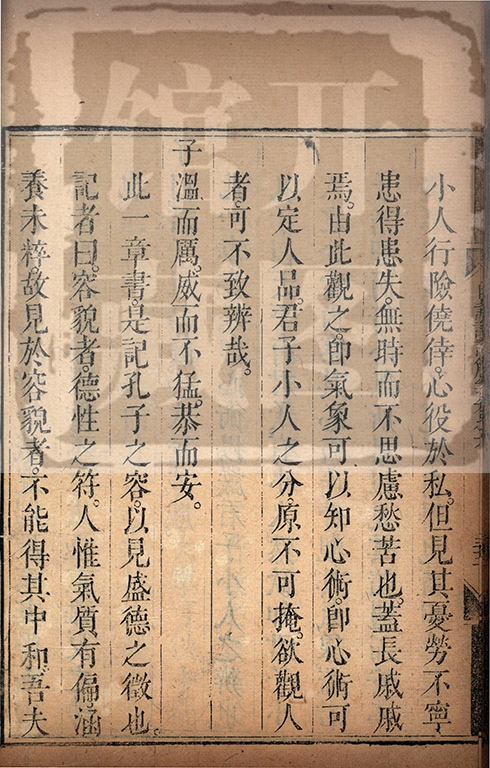 小人行險僥倖。心役於私。但見其憂勞不寧
患得患失。無時而不思慮愁苦也。蓋長戚戚
焉。由此觀之。即氣象可以知心術。即心術可
以定人品。君子小人之分。原不可掩。欲觀人
者。可不致辨哉。
子溫而厲。威而不猛。恭而安。
此一章書。是記孔子之容。以見盛德之徵也。
記者曰。容貌者。德性之符。人惟氣質有偏。涵
養未粹。故見於容貌者。不能得其中和。吾夫